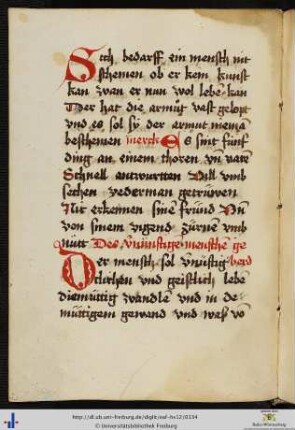 Sich bedarff ein mensch nit
schemen ob er kein kunst
kan wan er nun wol lebe kan
Der hat die armůt vast gelopt
vnd es sol sÿ der armut nieman
beschemen merck Es sint fúnff
ding an einem thoren zů
Schnell antwurtten Vill vmb
sechen yederman getrúwen
Nit erkennen sine fründ Vn
von sinem zúrne vmb
nutt Des vnúnftige mensche ge
Der mensch sol vnúftig
vnd geistlich lebē
diemüttig wandle vnd in de
müttigem gewand vnd
http://dl.ub.uni-freiburg.de/diglit/saf-hs12/0134
© Universitätsbibliothek Freiburg